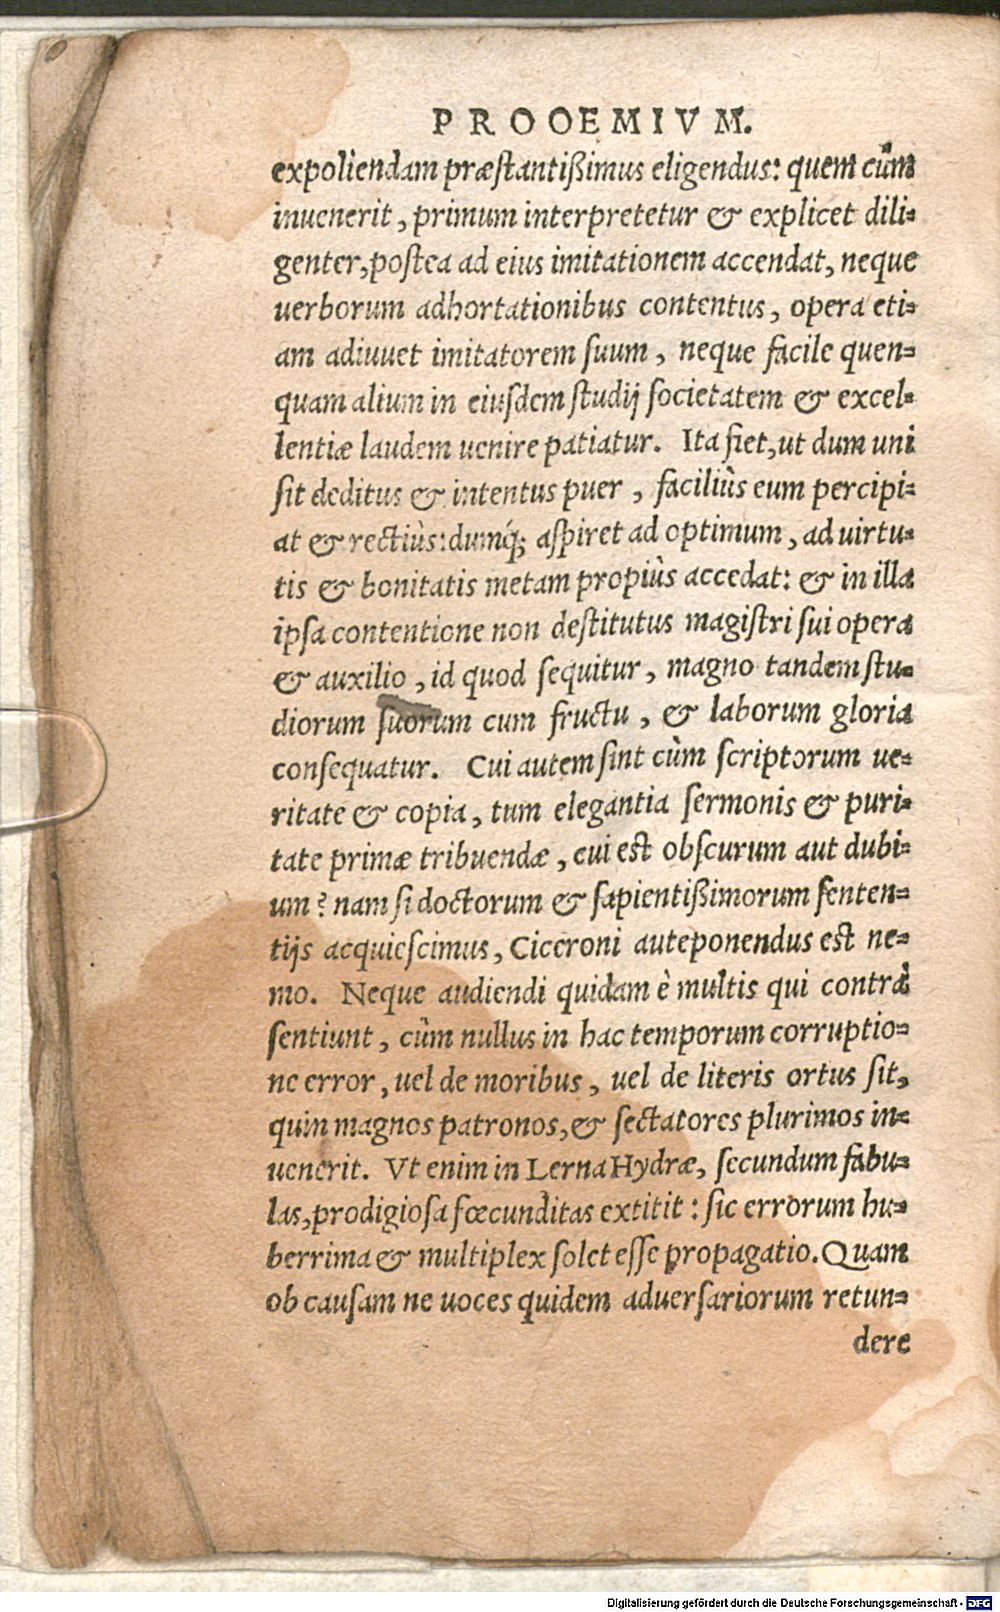 PROOEMIVM.
expoliendam præstantißimus eligendus: quem cùm
inuenerit, primum interpretetur & explicet dili-
genter, postea ad eius imitationem accendat, neque
uerborum adhortationibus contentus, opera eti-
am adiuuet imitatorem suum, neque facile quen-
quam alium in eiusdem studij societatem & excel-
lentiæ laudem uenire patiatur. Ita fiet, ut dum uni
sit deditus & intentus puer, faciliùs eum percipi-
at & rectiùs: dumq́; aspiret ad optimum, ad uirtu-
tis & bonitatis metam propiùs accedat: & in illa
ipsa contentione non destitutus magistri sui opera
& auxilio, id quod sequitur, magno tandem stu-
diorum suorum cum fructu, & laborum gloria
consequatur. Cui autem sint cùm scriptorum ue-
ritate & copia, tum elegantia sermonis & puri-
tate primæ tribuendæ, cui est obscurum aut dubi-
um? nam si doctorum & sapientißimorum senten-
tijs acquiescimus, Ciceroni auteponendus est ne-
mo. Neque audiendi quidam è multis qui contrà
sentiunt, cùm nullus in hac temporum corruptio-
ne error, uel de moribus, uel de literis ortus sit,
quin magnos patronos, & sectatores plurimos in-
uenerit. Vt enim in Lerna Hydræ, secundum fabu-
las, prodigiosa fœcunditas extitit: sic errorum hu-
berrima & multiplex solet esse propagatio. Quam
ob causam ne uoces quidem aduersariorum retun-
dere
Digitalisierung gefördert durch die Deutsche Forschungsgemeinschaft - DFG